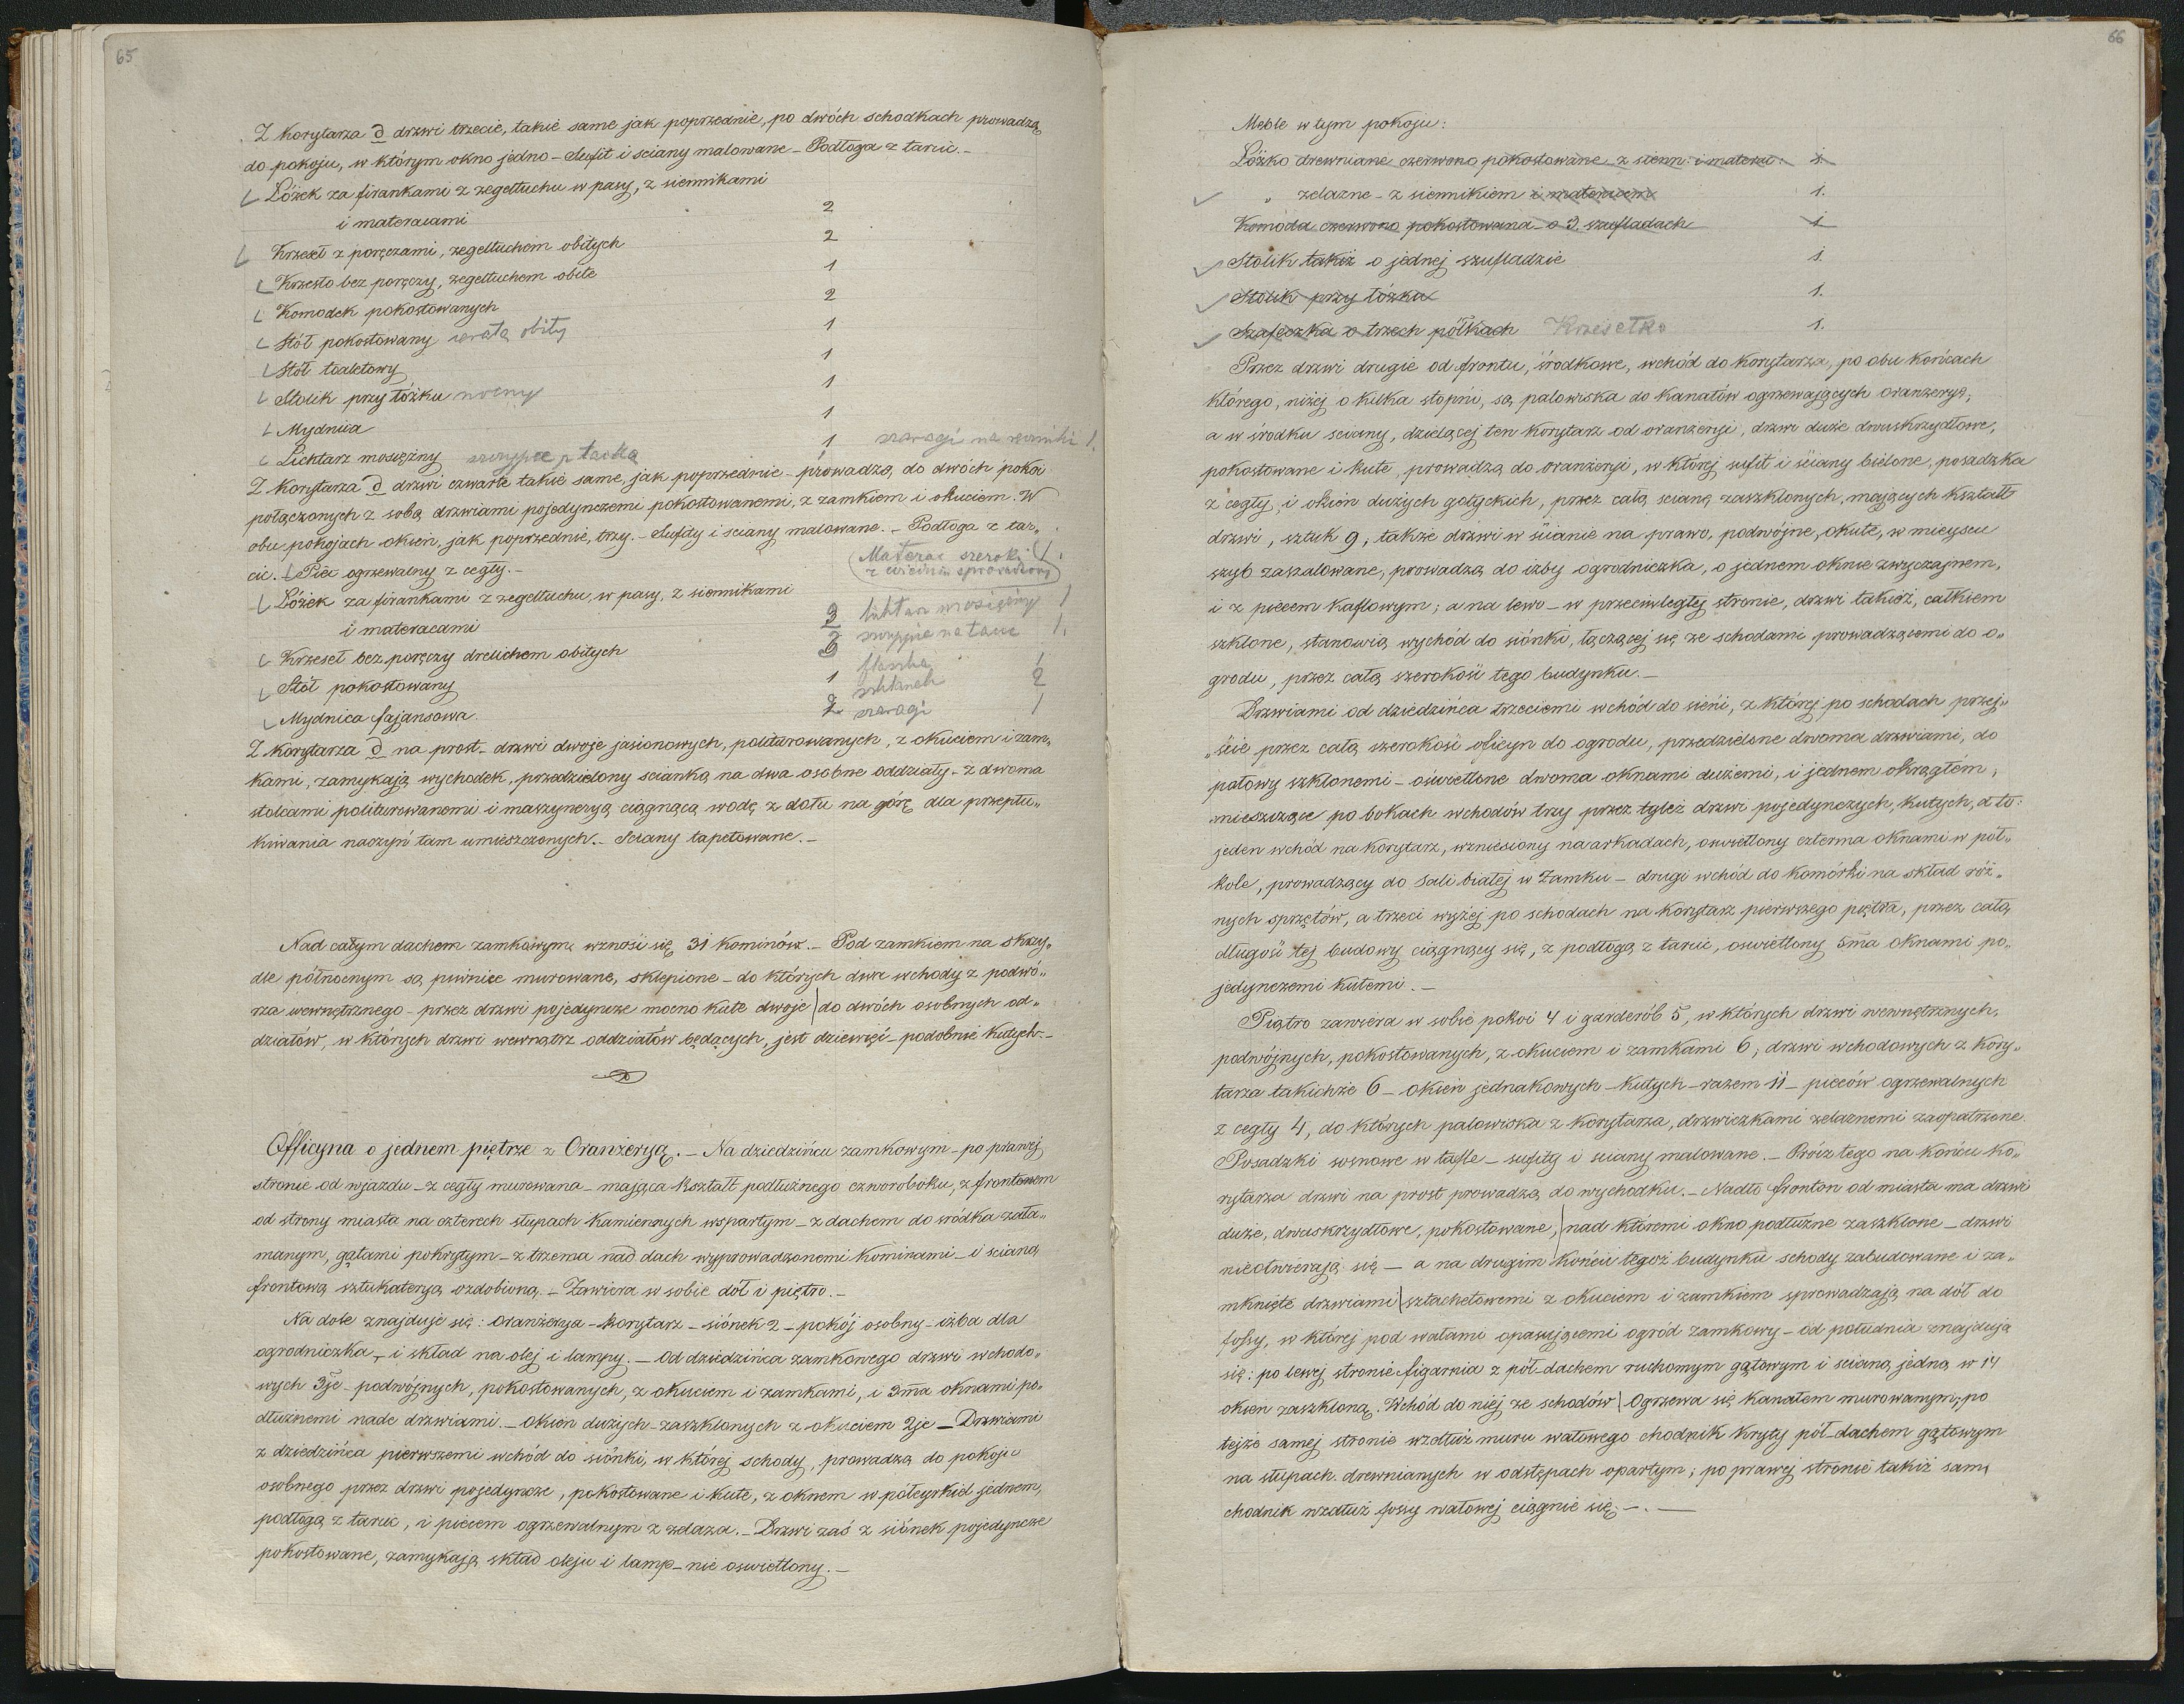 65
Z Korytarza d drzwi trzecie, takie same jak poprzednie, po dwóch schodkach prowadzą
do pokoju, w którym okno jedno – Sufit i sciany malowane – Podłoga z tarcic. –
Łóżek za firankami z żegeltuchu w pasy, z siennikami
i materacami 2
Krzeseł z poręczami, żegeltuchem obitych 2
Krzesło bez poręczy, żegeltuchem obite 1
Komodek pokostowanych 2
Stół pokostowany ceratą obity 1
Stół toaletowy 1
Stolik przy łóżku nocny 1
Mydnica 1
Lichtarz mosiężny szczypce p tacka 1 szaragi na 1
Z Korytarza d drzwi czwarte takie same, jak poprzednie – prowadzą do dwóch pokoi
połączonych z sobą drzwiami pojedynczemi pokostowanemi, z zamkiem i okuciem. W
obu pokojach okien, jak poprzednie, trzy. – Sufity i sciany malowane. – Podłoga z tar„
cic. Piec ogrzewalny z cegły. –
Materac szeroki 1.
z Wiednia sprowadzony
Łóżek za firankami z żegeltuchu, w pasy, z siennikami
i materacami 2 lichtarz mosiężny 1
szczypce na tacce 1.
Krzeseł bez poręczy drelichem obitych 3
flaszka 1
Stół pokostowany 1 szklanek 2
Mydnica fajansowa. szaragi 1
Z Korytarza d na prost – drzwi dwoje jasionowych, politurowanych, z okuciem i zam„
kami, zamykają wychodek, przedzielony scianką na dwa osobne oddziały – z dwoma
stolcami politurowanemi i maszyneryą ciągnącą wodę z dołu na górę dla przepłu„
kiwania naczyń tam umieszczonych. – Sciany tapetowane. –
Nad całym dachem zamkowym wznosi się 31 kominów. – Pod zamkiem na skrzy„
dle północnym są piwnice murowane, sklepione – do których dwa wchody z podwó„
rza wewnętrznego – przez drzwi pojedyncze mocno kute dwoje | do dwóch osobnych od„
działów, w których drzwi wewnątrz oddziałów będących, jest dziewięć – podobnie kutych. –
Officyna o jednem piętrze z Oranżeryą. – Na dziedzińcu zamkowym – po prawej
stronie od wjazdu – z cegły murowana – mająca kształt podłużnego czworoboku, z frontonem
od strony miasta na czterech słupach kamiennych wspartym – z dachem do srodka zała„
manym, gątami pokrytym – z trzema nad dach wyprowadzonemi kominami – i scianą
frontową sztukateryą ozdobioną. – Zawiera w sobie dół i piętro. –
Na dole znajduje się: Oranżerya – Korytarz – siónek 2 – pokój osobny – izba dla
ogrodniczka – i skład na olej i lampy. – Od dziedzińca zamkowego drzwi wchodo„
wych 3je – podwójnych, pokostowanych, z okuciem i zamkami, i 3ma oknami po„
dłużnemi nade drzwiami. – Okien dużych – zaszklonych z okuciem 2je – Drzwiami
z dziedzińca pierwszemi wchód do siónki, w której schody, prowadzą do pokoju
osobnego przez drzwi pojedyncze, pokostowane i kute, z oknem w półcyrkiel jednem,
podłogą z tarcic, i piecem ogrzewalnym z żelaza. – Drzwi zaś z siónek pojedyncze
pokostowane, zamykają skład oleju i lamp – nie oswietlony. –
66
Meble w tym pokoju:
Łóżko drewniane czerwono pokostowane – z sienn: i materac: 1.
„ żelazne – z siennikiem i materacem 1.
Komoda czerwono pokostowana – o 3 szufladach 1
Stolik takiż o jednej szufladzie 1.
Stolik przy łóżku 1.
Szafeczka o trzech pólkach Krzesełko 1.
Przez drzwi drugie od frontu, środkowe, wchód do korytarza, po obu końcach
którego, niżej o kilka stopni, są palowiska do kanałów ogrzewających oranżeryą,
a w środku sciany, dzielącej ten korytarz od oranżeryi, drzwi duże dwuskrzydłowe,
pokostowane i kute, prowadzą do oranżeryi, w której sufit i ściany bielone, posadzka
z cegły, i okien dużych gotyckich, przez całą scianę zaszklonych, mających kształt
drzwi, sztuk 9, także drzwi w ścianie na prawo, podwójne, okute, w miejscu
szyb zaszalowane, prowadzą do izby ogrodniczka, o jednem oknie zwyczajnem,
i z piecem kaflowym; a na lewo – w przeciwległej stronie, drzwi takież, całkiem
szklone, stanowią wychód do siónki, łączącej się ze schodami prowadzącemi do o„
grodu, przez całą szerokość tego budynku. –
Drzwiami od dziedzińca trzeciemi wchód do sieni, z której po schodach przej„
„ście przez całą szerokość oficyn do ogrodu, przedzielone dwoma drzwiami, do
połowy szklonemi – oświetlone dwoma oknami dużemi, i jednem okrągłem,
mieszczące po bokach wchodów trzy przez tyleż drzwi pojedynczych, kutych, a to:
jeden wchód na korytarz, wzniesiony na arkadach, oswietlony czterma oknami w pół„
kole, prowadzący do Sali białej w Zamku – drugi wchód do komórki na skład róż„
nych sprzętów, a trzeci wyżej po schodach na korytarz pierwszego piętra, przez całą
długość tej budowy ciągnący się, z podłogą z tarcic, oswietlony 5ma oknami po„
jedynczemi kutemi. –
Piętro zawiéra w sobie pokoi 4 i garderób 5, w których drzwi wewnętrznych,
podwójnych, pokostowanych, z okuciem i zamkami 6, drzwi wchodowych z kory„
tarza takichże 6 – okien jednakowych – kutych – razem 11 – pieców ogrzewalnych
z cegły 4, do których palowiska z korytarza, drzwiczkami żelaznemi zaopatrzone.
Posadzki sosnowe w tafle – sufity i sciany malowane. – Prócz tego na końcu ko„
rytarza drzwi na prost prowadzą do wychodku. – Nadto fronton od miasta ma drzwi
duże, dwuskrzydłowe, pokostowane, | nad któremi okno podłużne zaszklone – drzwi
nie otwiérają się – a na drugim końcu tegoż budynku schody zabudowane i za„
mknięte drzwiami | sztachetowemi z okuciem i zamkiem sprowadzają na dół do
fossy, w której pod wałami opasującemi ogród zamkowy – od południa znajdują
się: po lewej stronie figarnia z pół-dachem ruchomym gątowym i scianą jedną w 14
okien zaszkloną. Wchód do niej ze schodów | Ogrzewa się kanałem murowanym; po
tejże samej stronie wzdłuż muru wałowego chodnik kryty pół-dachem gątowym
na słupach drewnianych w odstępach opartym; po prawej stronie takiż sam
chodnik wzdłuż fossy wałowej ciągnie się. –